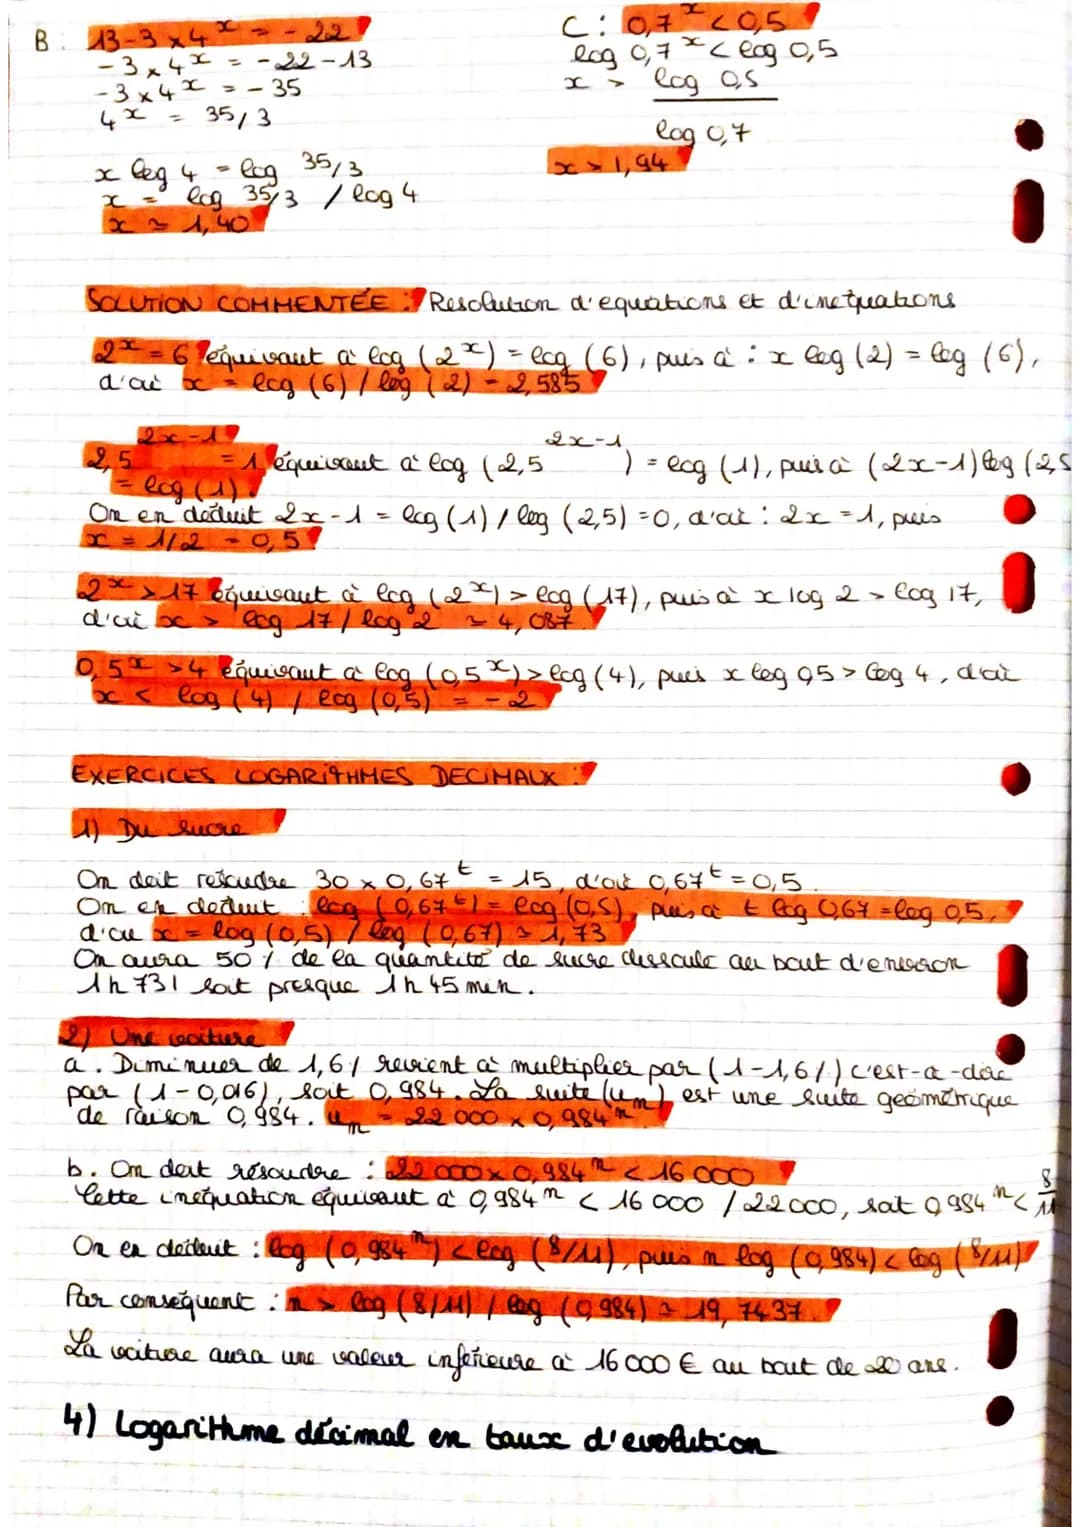 B : 13-3 × 4^x = -22
-3 × 4^x = -22-13
-3 × 4^x = -35
4^x = 35/3
x log 4 = log 35/3
x = log 35/3 / log 4
x ≃ 1,40
C : 0,7^x < 0,5
log 0,7^x < log 0,5
x > log 0,5
log 0,7
x > 1,94
SOLUTION COMMENTÉE : Resolution d'equations et d'inequations
2^x = 6 équivaut à log (2^x) = log (6), puis à : x log (2) = log (6),
d'où x = log (6) / log (2) = 2,585
2,5^2x-1 = 1 équivaut à log (2,5^2x-1) = log (1), puis à (2x-1) log (2,5
= log (1).
On en déduit 2x-1 = log (1) / log (2,5) = 0, d'où : 2x = 1, puis
x = 1/2 = 0,5
2^x > 17 équivaut à log (2^x) > log (17), puis à x log 2 > log 17,
d'où x > log 17 / log 2 ≃ 4,087.
0,5^x > 4 équivaut à log (0,5^x) > log (4), puis x log 0,5 > log 4, d'où
x < log (4) / log (0,5) = -2
EXERCICES LOGARITHMES DECIMAUX :
1) Du sucre
On doit résoudre 30 × 0,67^t = 15, d'où 0,67^t = 0,5.
On en deduit : log (0,67^t) = log (0,5), puis à t log 0,67 = log 0,5,
d'ou x = log (0,5) / log (0,67) ≃ 1,73
On aura 50 % de la quantité de sucre dissoute au bout d'environ
1h731 soit presque 1h45 min.
2) Une voiture
a. Diminuer de 1,6% revient à multiplier par (1-1,6%) c'est-a-dire
par (1-0,016), soit 0,984. La suite (u_n) est une suite geométrique
de raison 0,984. u_n = 22 000 × 0,984^n
b. On doit résoudre : 22 000 × 0,984^n < 16 000
Cette inéquation équivaut à 0,984^n < 16 000 / 22 000, soit 0,984^n < 8/11
On en déduit : log (0,984^n) < log (8/11), puis n log (0,984) < log (8/11)
Par conséquent : n > log (8/11) / log (0,984) ≃ 19,7437.
La voiture aura une valeur inférieure à 16 000 € au bout de 20 ans.
4) Logarithme décimal en taux d'evolution